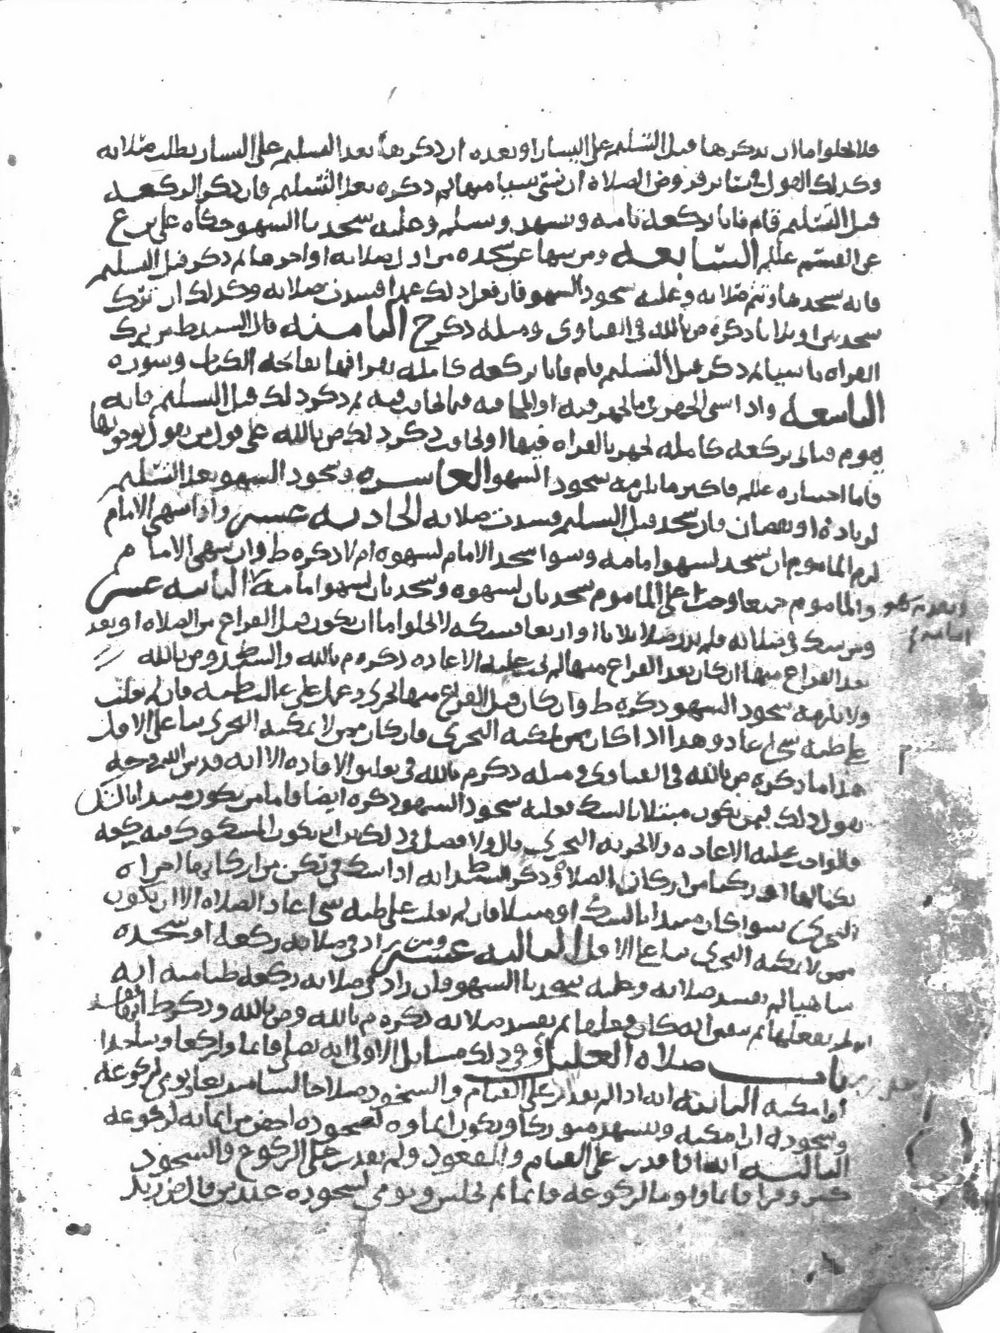 فلا يخلو اما ان يذكرها قبل التسليم على اليسار او بعده ان ذكرها بعد التسليم على اليسار بطلت صلاته
وكذلك القول في سائر فروض الصلاة ان نسي شيا منها ثم ذكره بعد التسليم فان ذكر الركعه
قبل التسليم قام فاتا بركعة تامه وتشهد وسلم وعليه سجدتا السهو حكاه علي بن ع
عن القسم عللم السابعه ومن سها عن سجده من اول صلاته او اخرها ثم ذكر قبل التسليم
فانه يسجدها وتتم صلاته وعليه سجود السهو فان فعل ذلك عمدا فسدت صلاته وكذلك ان ترك
سجدتين او ثلاثا ذكره ص بالله في الفتاوى ومثله ذكر ح الثامنه قال السيد ط من ترك
القراه ناسيا ثم ذكر قبل التسليم قام فاتا بركعة كامله يقرا فيها بفاتحة الكتاب وسوره
التاسعه واذا نسي الجهر في ما يجهر فيه او المخافته فيما يخافت فيه ثم ذكر ذلك قبل التسليم فانه
يقوم فياتي بركعة كامله يجهر بالقراه فيها او يخافت ذكر ذلك ص بالله على قول من يقول بوجوبها
فاما اختياره عللم فاكثر ما يلزمه سجود السهو العاشره وسجود السهو بعد التسليم
لزيادة او نقصان فان سجد قبل التسليم فسدت صلاته الحاديه عشر واذا سهى الامام
لزم الماموم ان يسجد لسهو امامه وسوا سجد الامام لسهوه ام لا ذكره ط وان سهى الامام
والماموم جميعا وجب على الماموم سجدتان لسهوه وسجدتان لسهو امامه الثانيه عشر
ومن شك في صلاته فلم يدر صلا ثلاثا او اربعا فشكه لا يخلو اما ان يكون قبل الفراغ من الصلاه او بعد
بعد الفراغ منها ان كان بعد الفراغ منها لم يجب عليه الاعاده ذكره م بالله والسيد ط وص بالله
ولا يلزمه سجود السهو ذكره ط وان كان قبل الفراغ منها تحرى وعمل على غالب ظنه فان لم يغلب
على ظنه شي اعاد وهذا اذا كان ممن يمكنه التحري فان كان ممن لا يمكنه التحري بنا على الاقل
هذا ما ذكره ص بالله في الفتاوى ومثله ذكر م بالله في تعليق الافاده الا انه قدس الله روحه
يقول ذلك فيمن يكون مبتلا بالشك فعليه سجود السهو ذكره ايضا فاما من يكون مبتدا بالشك
فالواجب عليه الاعاده ولا يجزيه التحري قال ولا فصل في ذلك بين ان يكون المشكوك فيه ركعه
بكمالها او ركنا من اركان الصلاة وذكر السيد ط انه اذا شك في ركن من اركانها اجزاه
التحري سوا كان مبتدا بالشك او مبتلا فان لم يغلب على ظنه شي اعاد الصلاه الا ان يكون
ممن لا يمكنه التحري بنا على الاقل الثالثه عشر ومن زاد في صلاته ركعه او سجده
ساهيا لم تفسد صلاته وعليه سجدتا السهو فان زاد في صلاته ركعة ظنا منه انه
لم يفعلها ثم تيقن انه كان فعلها لم تفسد صلاته ذكره م بالله وص بالله وذكر ط انها تفسد
باب صلاة العليل وفي ذلك مسايل الاولى انه يصلي قائما وراكعا وساجدا
اذا امكنه الثانيه انه اذا لم يقدر على القيام والسجود صلا جالسا متربعا يومي لركوعه
وسجوده ان امكنه وتشهد متوركا ويكون ايماوه لسجوده اخفض من ايمائه لركوعه
الثالثه انه اذا قدر على القيام والقعود ولم يقدر على الركوع والسجود
كبر وقرا قائما واوما لركوعه قائما ثم يجلس ويومي لسجوده عند من قال ص زيد